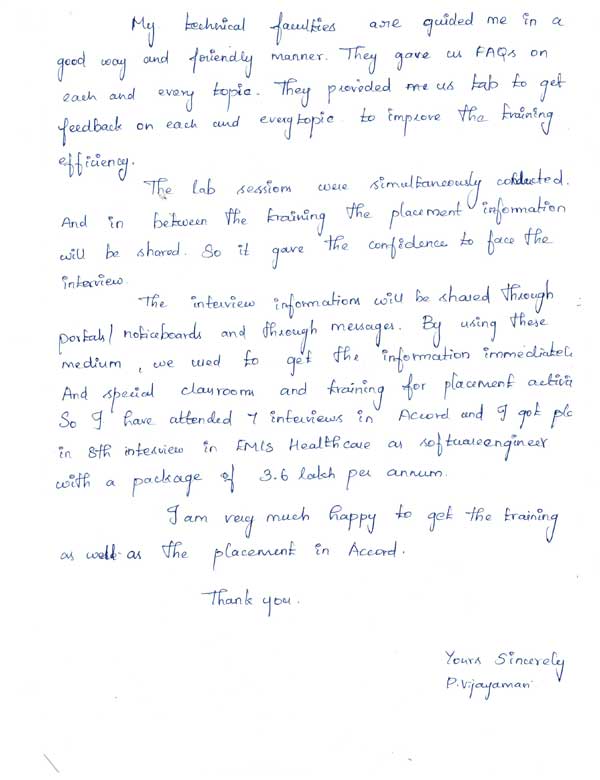 My technical faculties are guided me in a
good way and friendly manner. They gave us FAQs on
each and every topic. They provided me us tab to get
feedback on each and every topic to improve the training
efficiency.
The lab session were simultaneously conducted.
And in between the training the placement information
will be shared. So it gave the confidence to face the
interview.
The interview informations will be shared through
portals/ noticeboards and through messages. By using these
medium, we used to get the information immediately
And special classroom and training for placement activi
So I have attended 7 interviews in Accord and I got plc
in 8th interview in EMIS Healthcare as software engineer
with a package of 3.6 lakh per annum.
I am very much happy to get the training
as well as the placement in Accord.
Thank you.
Yours Sincerely
P. Vijayamari